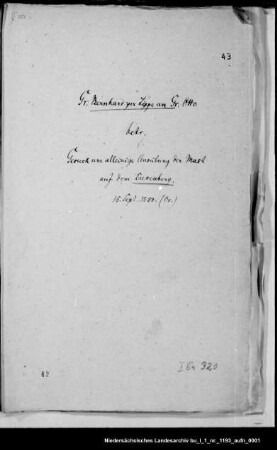 43
Gr. Bernhard zur Lippe an Gr. Otto
betr.
Gesuch um alleinige Ausübung der Mast
auf dem
15. Sept. (Or.)
42
Niedersächsisches Landesarchiv bu_l_1_nr_1193_aufn_0001